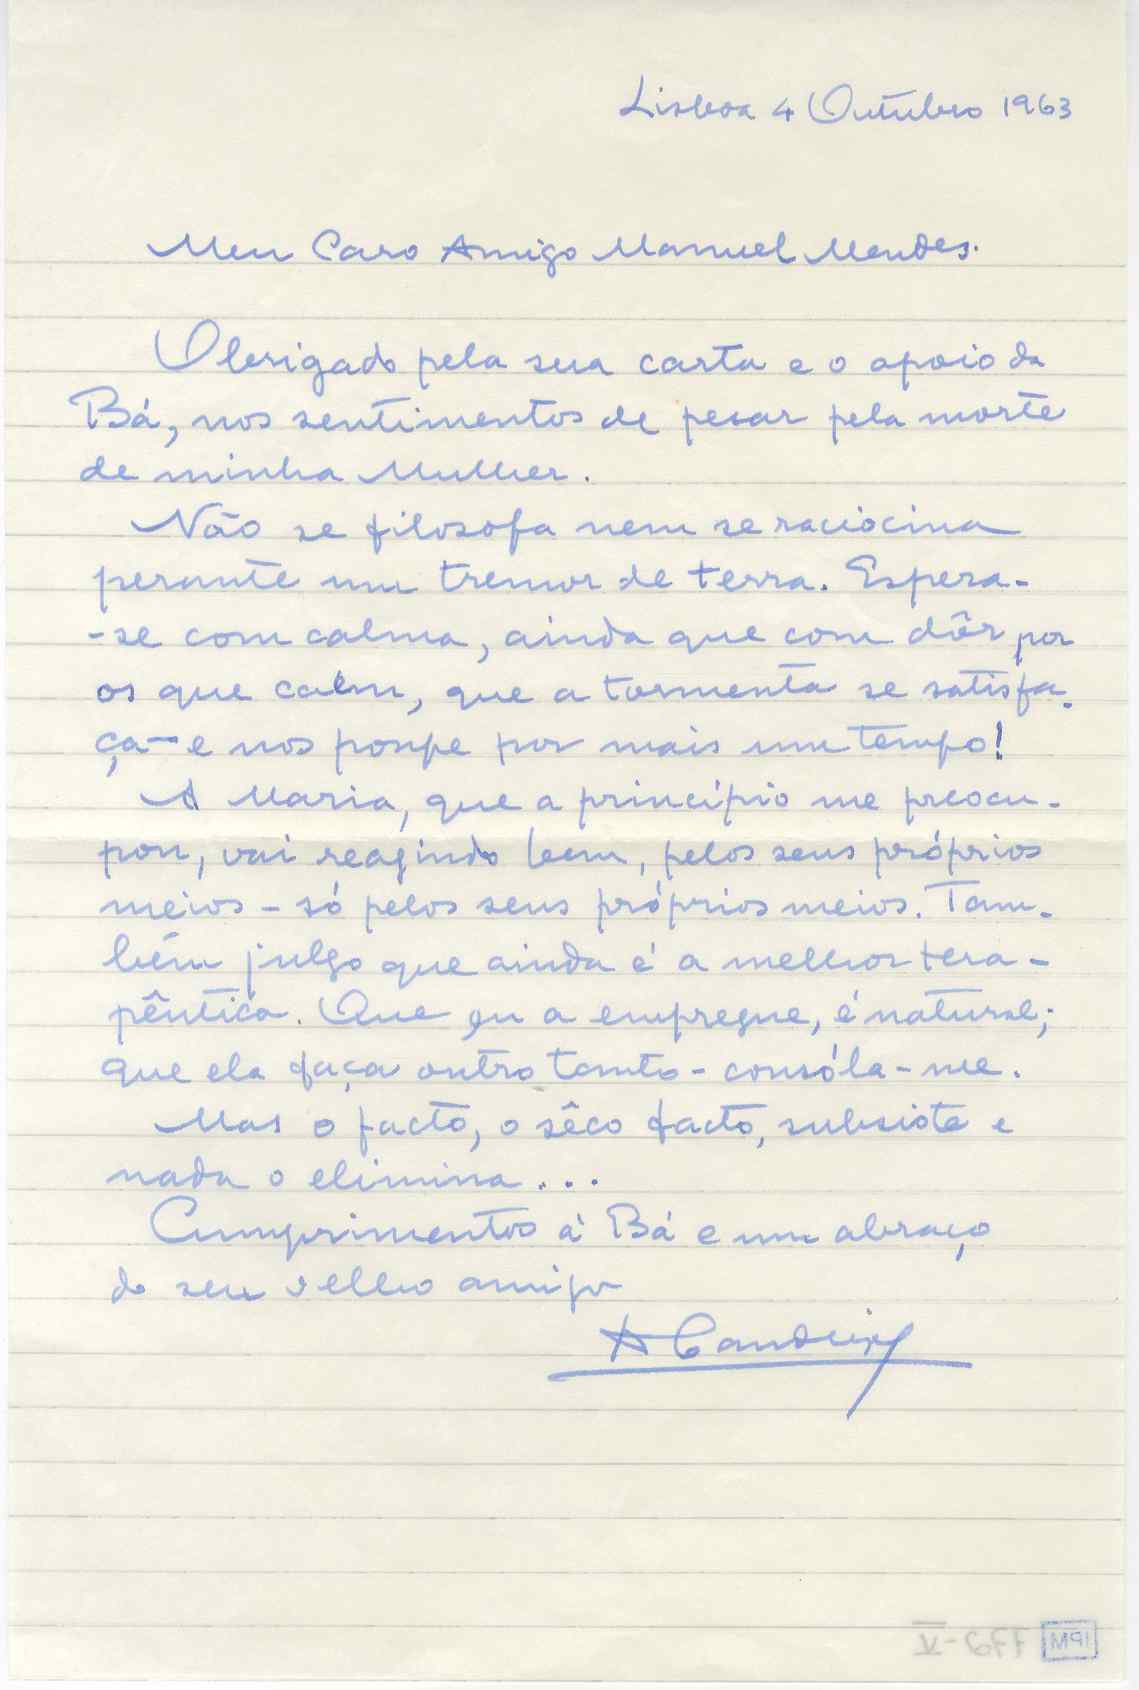 Lisboa 4 Outubro 1963
Meu Caro Amigo Manuel Mendes.
Obrigado pela sua carta e o apoio da
Bá, nos sentimentos de pesar pela morte
de minha Mulher.
Não se filosofa nem se raciocina
perante um tremor de terra. Espera-
-se com calma, ainda que com dôr por
os que caem, que a tormenta se satisfa-
ça e nos poupe por mais um tempo!
A Maria, que a princípio me preocu-
pou, vai reagindo bem, pelos seus próprios
meios - só pelos seus próprios meios. Tam-
bém julgo que ainda é a melhor tera-
pêutica. Que eu a empregue, é natural;
que ela faça outro tanto - consóla-me.
Mas o facto, o sêco facto, subsiste e
nada o elimina...
Cumprimentos à Bá e um abraço
do seu velho amigo
A
IPM